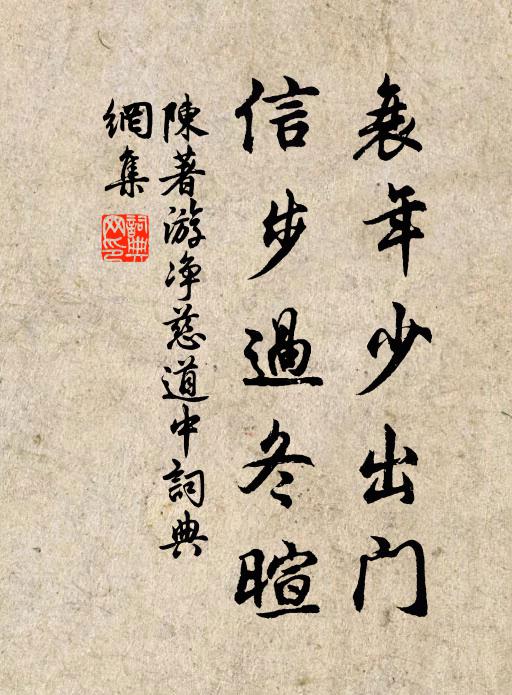 衰年少出门
信步過冬暄
陳著游净慈道中詞典
網集
詞典网印